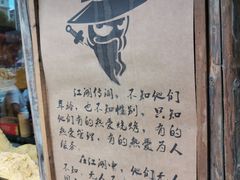 江湖传闻，不知他们
年龄，也不知性别，只知
他们有的热爱烧烤，有的
热爱管理，有的热爱为人
服务
在江湖中，他们无人
不知